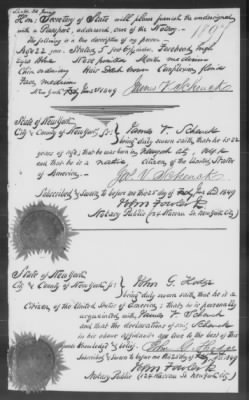 Hon. Secretary of State will please furnish the undersigned
with a Passport, addressed, care of the Notary.
The following is the description of my person.
Age 22 years. Stature, 5 feet 6 inches. Forehead high
Eyes blue Nose prominent Mouth medium
Chin ordinary Hair Dark brown Complexion florid
Face medium
New York, 1849 James V. Schenck
State of New York
City & County of New York, SS: James V. Schenck
being duly sworn saith, that he is 22
years of age; that he was born in
and that he is a native citizen of the United States
of America. Jas. V. Schenck
Subscribed & Sworn to before me the 25 day of 1849
John Fowler Jr
Notary Public (124 Nassau St. New York city)
State of New York
City & County of New York, SS: John G. Hodge
being duly sworn saith, that he is a
Citizen of the United States of America; that he is personally
acquainted with James V. Schenck
and that the declarations of said Schenck
in his above affidavit are true to the best of this
knowledge & belief. John G. Hodge
Sworn to before me the 25 day of 1849
John Fowler Jr
Notary Public (124 Nassau St. New York city)